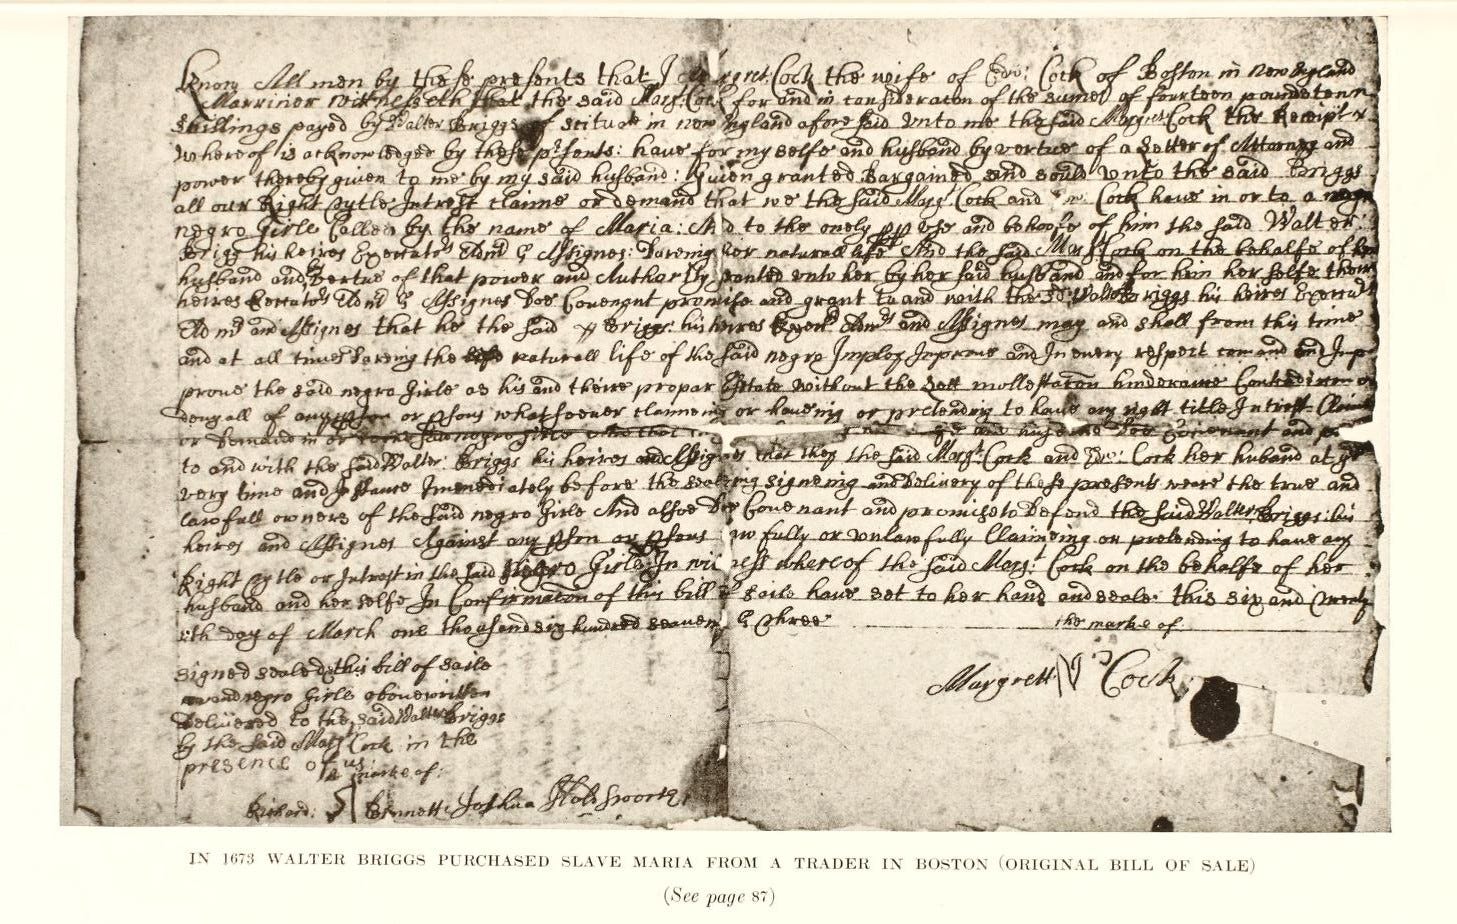 Know All men by these presents that I Margret Cock the wife of Edw: Cock of Boston in New England
Marriner witnesseth that the said Marg: Cock for and in consideracon of the sume of fourteen pounds tenn
shillings payed by Walter Briggs of scituate in new England afore said vnto me the said Margret Cock the Receipt
whereof is acknowledged by these psents: have for my selfe and husband by vertue of a Letter of Attorney and
power thereby given to me by my said husband: Given granted Bargained and sould vnto the said Briggs
all our Right tytle Intrest claime or demand that we the said Marg Cock and Cock have in or to a
negro Girle Called by the name of Maria: And to the onely vse and behoofe of him the said Walter
Briggs his heires Executors Adm & Assignes: Dureing her naturall life And the said Marg Cock on the behalfe of her
husband and Vertue of that power and Authority granted vnto her by her said husband and for him her selfe theire
heires Executors Adm & Assignes Doe Covenant promise and grant to and with the sd: Walter Briggs his heires Execut
Adm and Assignes that he the said Briggs: his heires Execut Adm and Assignes may and shall from this time
and at all times Dureing the naturall life of the said negro Imploy Improve and In every respect comand and Im
prove the said negro Girle as his and theire propar Estate without the Lett mollestation hinderance Contradiction or
denyall of any pson or psons whatsoever claimeing or haveing or pretending to have any right title Intrest Claime
or Demand in or said negro Girle Doe Covenant and
to and with the said Walter Briggs his heires and Assignes that they the said Marg Cock and Edw: Cock her huband at ye
very time and Instance Imediately before the sealeing signeing and Delivery of these presents weare the true and
lawfull owners of the said negro Girle And alsoe Doe Covenant and promise to Defend the said Walter Briggs: his
heires and Assignes Against any pson or psons lawfully or vnlawfully Claimeing or pretending to have any
Right tytle or Intrest in the said Negro Girle In witness whereof the said Marg: Cock on the behalfe of her
husband and her selfe In Confirmation of this bill of saile have set to her hand and seale this six and twenty
ith day of March one thousand six hundred seaventy & three the marke of
Margrett Cock
signed sealed this bill of saile
and negro Girle above written
Delivered to the said Walter Briggs
by the said Marg Cock in the
presence of us:
marke of:
Richard: Bennett Joshua Holdsworth
IN 1673 WALTER BRIGGS PURCHASED SLAVE MARIA FROM A TRADER IN BOSTON (ORIGINAL BILL OF SALE)
(See page 87)